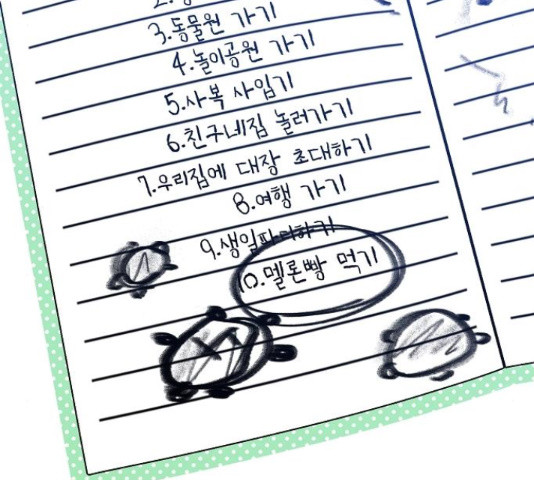 3.동물원 가기
4.놀이공원 가기
5.사복 사입기
6.친구네집 놀러가기
7.우리집에 대장 초대하기
8.여행 가기
9.생일파티하기
10.멜론빵 먹기